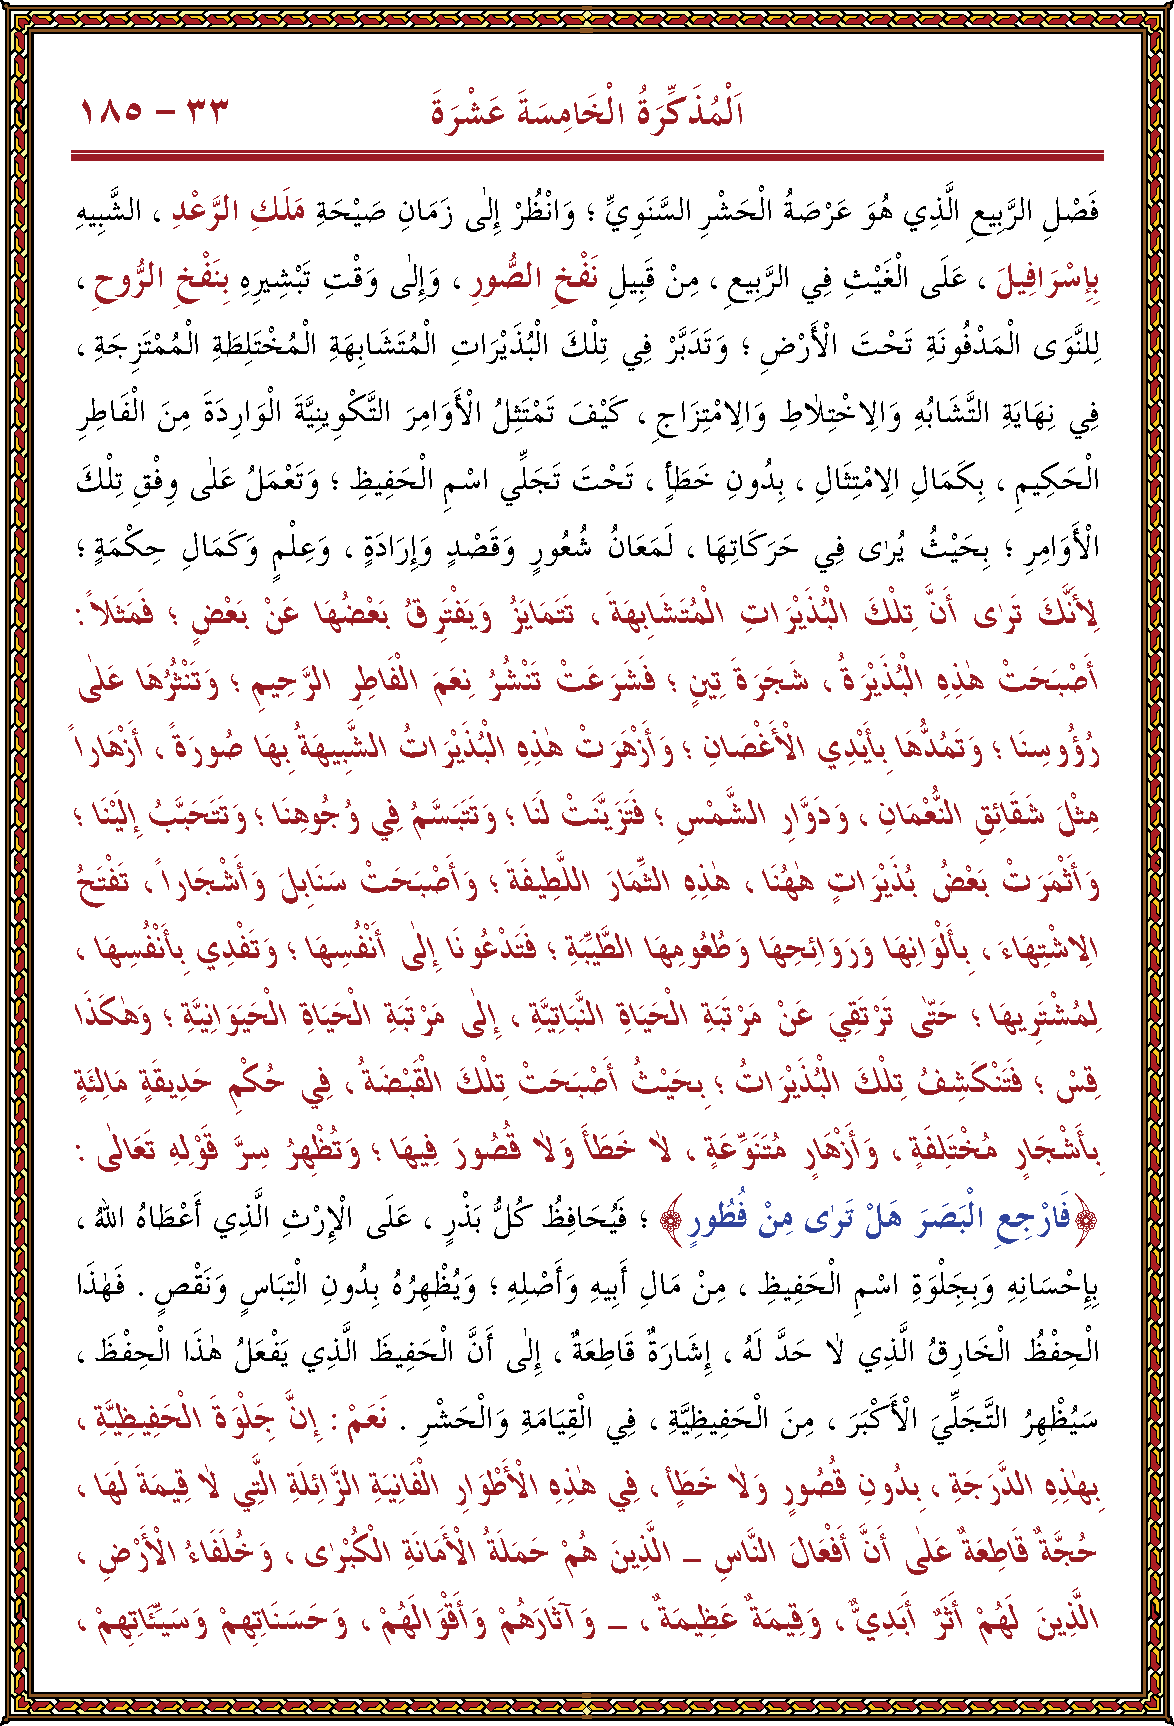 اَلْمُذَكِّرَةُ الْخَامِسَةَ عَشْرَةَ ٣٣ – ١٨٥
فَصْلِ الرَّبِيعِ الَّذِي هُوَ عَرْصَةُ الْحَشْرِ السَّنَوِيِّ ؛ وَانْظُرْ إِلٰى زَمَانِ صَيْحَةِ مَلَكِ الرَّعْدِ ، الشَّبِيهِ
بِإِسْرَافِيلَ ، عَلَى الْغَيْثِ فِي الرَّبِيعِ ، مِنْ قَبِيلِ نَفْخِ الصُّورِ ، وَإِلٰى وَقْتِ تَبْشِيرِهِ بِنَفْخِ الرُّوحِ ،
لِلنَّوَى الْمَدْفُونَةِ تَحْتَ الْأَرْضِ ؛ وَتَدَبَّرْ فِي تِلْكَ الْبُذَيْرَاتِ الْمُتَشَابِهَةِ الْمُخْتَلِطَةِ الْمُمْتَزِجَةِ ،
فِي نِهَايَةِ التَّشَابُهِ وَالِاخْتِلَاطِ وَالِامْتِزَاجِ ، كَيْفَ تَمْتَثِلُ الْأَوَامِرَ التَّكْوِينِيَّةَ الْوَارِدَةَ مِنَ الْفَاطِرِ
الْحَكِيمِ ، بِكَمَالِ الِامْتِثَالِ ، بِدُونِ خَطَأٍ ، تَحْتَ تَجَلِّي اسْمِ الْحَفِيظِ ؛ وَتَعْمَلُ عَلٰى وِفْقِ تِلْكَ
الْأَوَامِرِ ؛ بِحَيْثُ يُرٰى فِي حَرَكَاتِهَا ، لَمَعَانُ شُعُورٍ وَقَصْدٍ وَإِرَادَةٍ ، وَعِلْمٍ وَكَمَالِ حِكْمَةٍ ؛
لِأَنَّكَ تَرٰى أَنَّ تِلْكَ الْبُذَيْرَاتِ الْمُتَشَابِهَةَ ، تَتَمَايَزُ وَيَفْتَرِقُ بَعْضُهَا عَنْ بَعْضٍ ؛ فَمَثَلاً :
أَصْبَحَتْ هٰذِهِ الْبُذَيْرَةُ ، شَجَرَةَ تِينٍ ؛ فَشَرَعَتْ تَنْشُرُ نِعَمَ الْفَاطِرِ الرَّحِيمِ ؛ وَتَنْثُرُهَا عَلٰى
رُؤُوسِنَا ؛ وَتَمُدُّهَا بِأَيْدِي الْأَغْصَانِ ؛ وَأَزْهَرَتْ هٰذِهِ الْبُذَيْرَاتُ الشَّبِيهَةُ بِهَا صُورَةً ، أَزْهَاراً
مِثْلَ شَقَائِقِ النُّعْمَانِ ، وَدَوَّارِ الشَّمْسِ ؛ فَتَزَيَّنَتْ لَنَا ؛ وَتَتَبَسَّمُ فِي وُجُوهِنَا ؛ وَتَتَحَبَّبُ إِلَيْنَا ؛
وَأَثْمَرَتْ بَعْضُ بُذَيْرَاتٍ هٰهُنَا ، هٰذِهِ الثِّمَارَ اللَّطِيفَةَ ؛ وَأَصْبَحَتْ سَنَابِلَ وَأَشْجَاراً ، تَفْتَحُ
الِاشْتِهَاءَ ، بِأَلْوَانِهَا وَرَوَائِحِهَا وَطُعُومِهَا الطَّيِّبَةِ ؛ فَتَدْعُونَا إِلٰى أَنْفُسِهَا ؛ وَتَفْدِي بِأَنْفُسِهَا ،
لِمُشْتَرِيهَا ؛ حَتّٰى تَرْتَقِيَ عَنْ مَرْتَبَةِ الْحَيَاةِ النَّبَاتِيَّةِ ، إِلٰى مَرْتَبَةِ الْحَيَاةِ الْحَيَوَانِيَّةِ ؛ وَهٰكَذَا
قِسْ ؛ فَتَنْكَشِفُ تِلْكَ الْبُذَيْرَاتُ ؛ بِحَيْثُ أَصْبَحَتْ تِلْكَ الْقَبْضَةُ ، فِي حُكْمِ حَدِيقَةٍ مَالِئَةٍ
بِأَشْجَارٍ مُخْتَلِفَةٍ ، وَأَزْهَارٍ مُتَنَوِّعَةٍ ، لَا خَطَأَ وَلَا قُصُورَ فِيهَا ؛ وَتُظْهِرُ سِرَّ قَوْلِهِ تَعَالٰى :
﴿فَارْجِعِ الْبَصَرَ هَلْ تَرٰى مِنْ فُطُورٍ﴾ ؛ فَيُحَافِظُ كُلُّ بَذْرٍ ، عَلَى الْإِرْثِ الَّذِي أَعْطَاهُ اللهُ ،
بِإِحْسَانِهِ وَبِجِلْوَةِ اسْمِ الْحَفِيظِ ، مِنْ مَالِ أَبِيهِ وَأَصْلِهِ ؛ وَيُظْهِرُهُ بِدُونِ الْتِبَاسٍ وَنَقْصٍ . فَهٰذَا
الْحِفْظُ الْخَارِقُ الَّذِي لَا حَدَّ لَهُ ، إِشَارَةٌ قَاطِعَةٌ ، إِلٰى أَنَّ الْحَفِيظَ الَّذِي يَفْعَلُ هٰذَا الْحِفْظَ ،
سَيُظْهِرُ التَّجَلِّيَ الْأَكْبَرَ ، مِنَ الْحَفِيظِيَّةِ ، فِي الْقِيَامَةِ وَالْحَشْرِ . نَعَمْ : إِنَّ جِلْوَةَ الْحَفِيظِيَّةِ ،
بِهٰذِهِ الدَّرَجَةِ ، بِدُونِ قُصُورٍ وَلَا خَطَأٍ ، فِي هٰذِهِ الْأَطْوَارِ الْفَانِيَةِ الزَّائِلَةِ الَّتِي لَا قِيمَةَ لَهَا ،
حُجَّةٌ قَاطِعَةٌ عَلٰى أَنَّ أَفْعَالَ النَّاسِ – الَّذِينَ هُمْ حَمَلَةُ الْأَمَانَةِ الْكُبْرٰى ، وَخُلَفَاءُ الْأَرْضِ ،
الَّذِينَ لَهُمْ أَثَرٌ أَبَدِيٌّ ، وَقِيمَةٌ عَظِيمَةٌ ، – وَآثَارَهُمْ وَأَقْوَالَهُمْ ، وَحَسَنَاتِهِمْ وَسَيِّئَاتِهِمْ ،